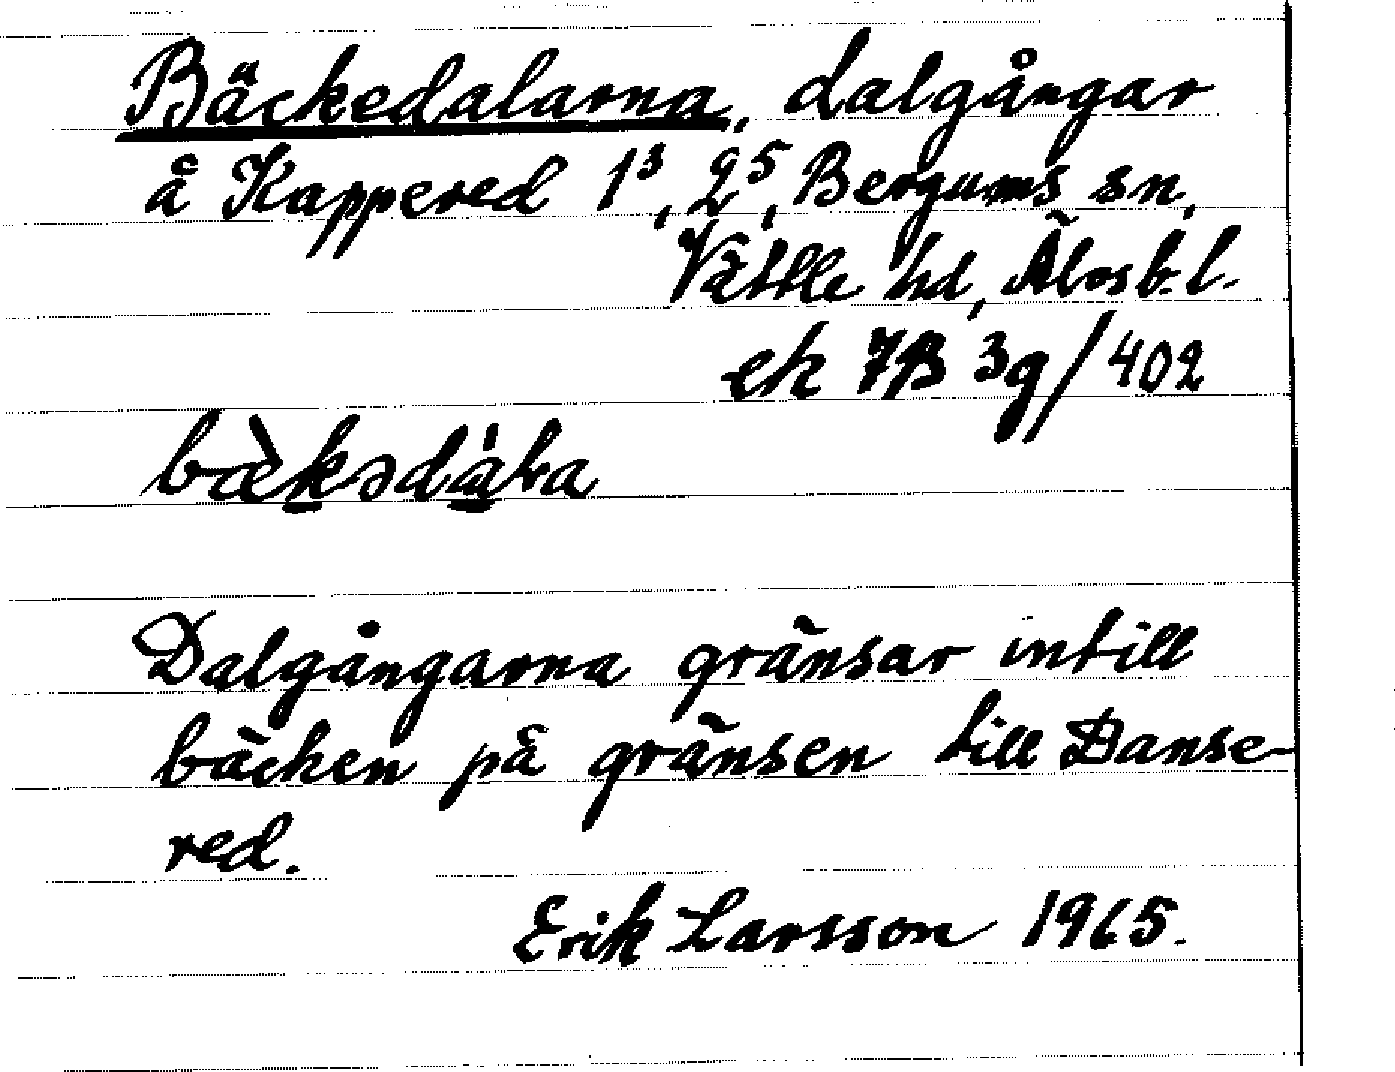 Bäckedalarna, dalgångar
å Kappered 1³, 2⁵, Bergums sn,
Vättle hd, Älvsb. l.
ek 7B 3g/402
bæ̀kədála
Dalgångarna gränsar intill
bäcken på gränsen till Danse-
red.
Erik Larsson 1965.